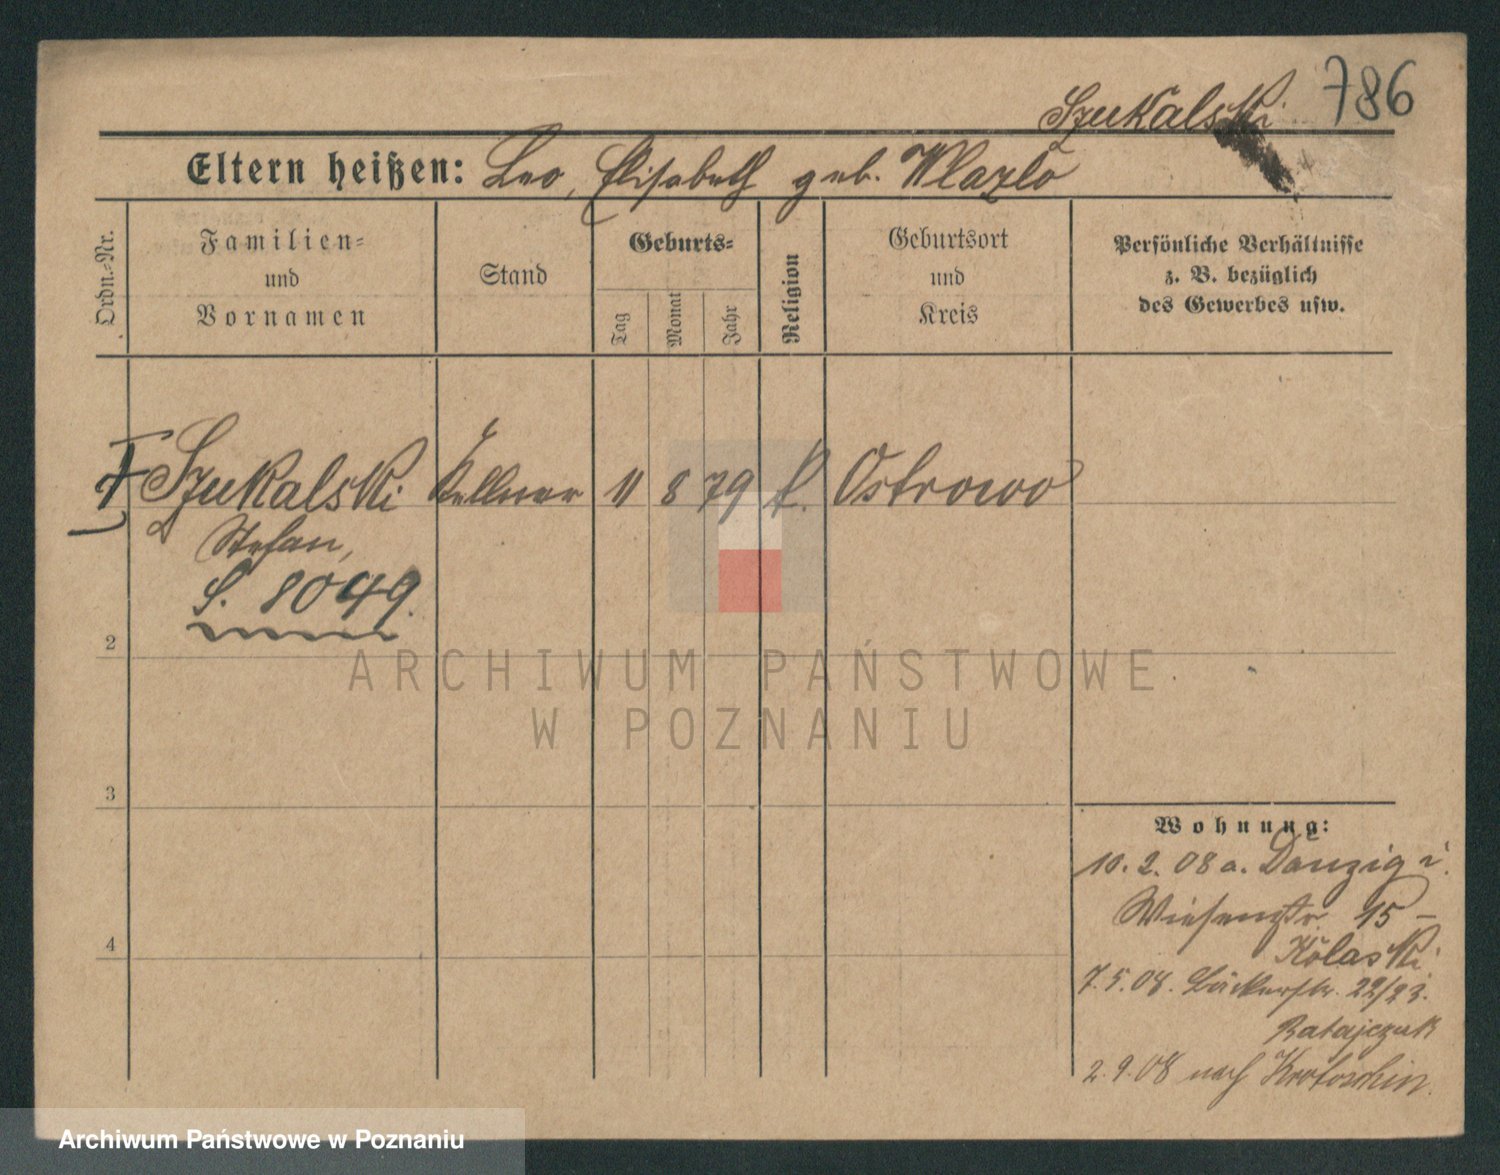 786
Szukalski
Eltern heißen: Leo, Elisabeth geb. Wlazlo
Ordn.-Nr.
Familien-
und
Vornamen
Stand
Geburts-
Tag
Monat
Jahr
Religion
Geburtsort
und
Kreis
Persönliche Verhältnisse
z. B. bezüglich
des Gewerbes usw.
Szukalski Kellner 11 8 79 k. Ostrowo
Stefan,
S. 8049.
2
3
4
Wohnung:
10. 2. 08 a. Danzig i.
Wiesenstr. 15 –
Kolaski
7. 5. 08. Bäckerstr. 22/23.
Ratajczak
2. 9. 08 nach Krotoschin.
ARCHIWUM PAŃSTWOWE
W POZNANIU
Archiwum Państwowe w Poznaniu